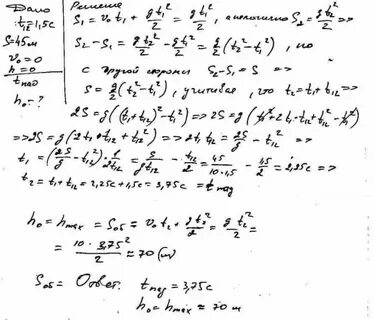 Дано
t₁₂=1,5с
S=45м
v₀=0
h=0
t пад
h₀-?
Решение
S₁ = v₀t₁ + gt₁²/2 = gt₁²/2, аналогично S₂ = gt₂²/2 =>
S₂-S₁ = gt₂²/2 - gt₁²/2 = g/2(t₂²-t₁²), но
с другой стороны S₂-S₁=S =>
S = g/2(t₂²-t₁²), учитывая, что t₂=t₁+t₁₂ =>
2S=g((t₁+t₁₂)²-t₁²) => 2S=g(t₁²+2t₁·t₁₂+t₁₂²-t₁²)
=>2S=g(2t₁t₁₂+t₁₂²) => 2t₁t₁₂ = 2S/g - t₁₂² =>
t₁ = (2S/g - t₁₂²)·1/2t₁₂ = S/gt₁₂ - t₁₂/2 = 45/10·1,5 - 1,5/2 = 2,25с
t₂=t₁+t₁₂=2,25с+1,5с=3,75с = t пад
h₀=hmax = Sоб = v₀t₂ + gt₂²/2 = gt₂²/2 =
= 10·3,75²/2 ≈ 70(м)
Sоб= Ответ. tпад=3,75с
h₀=hmax≈70м